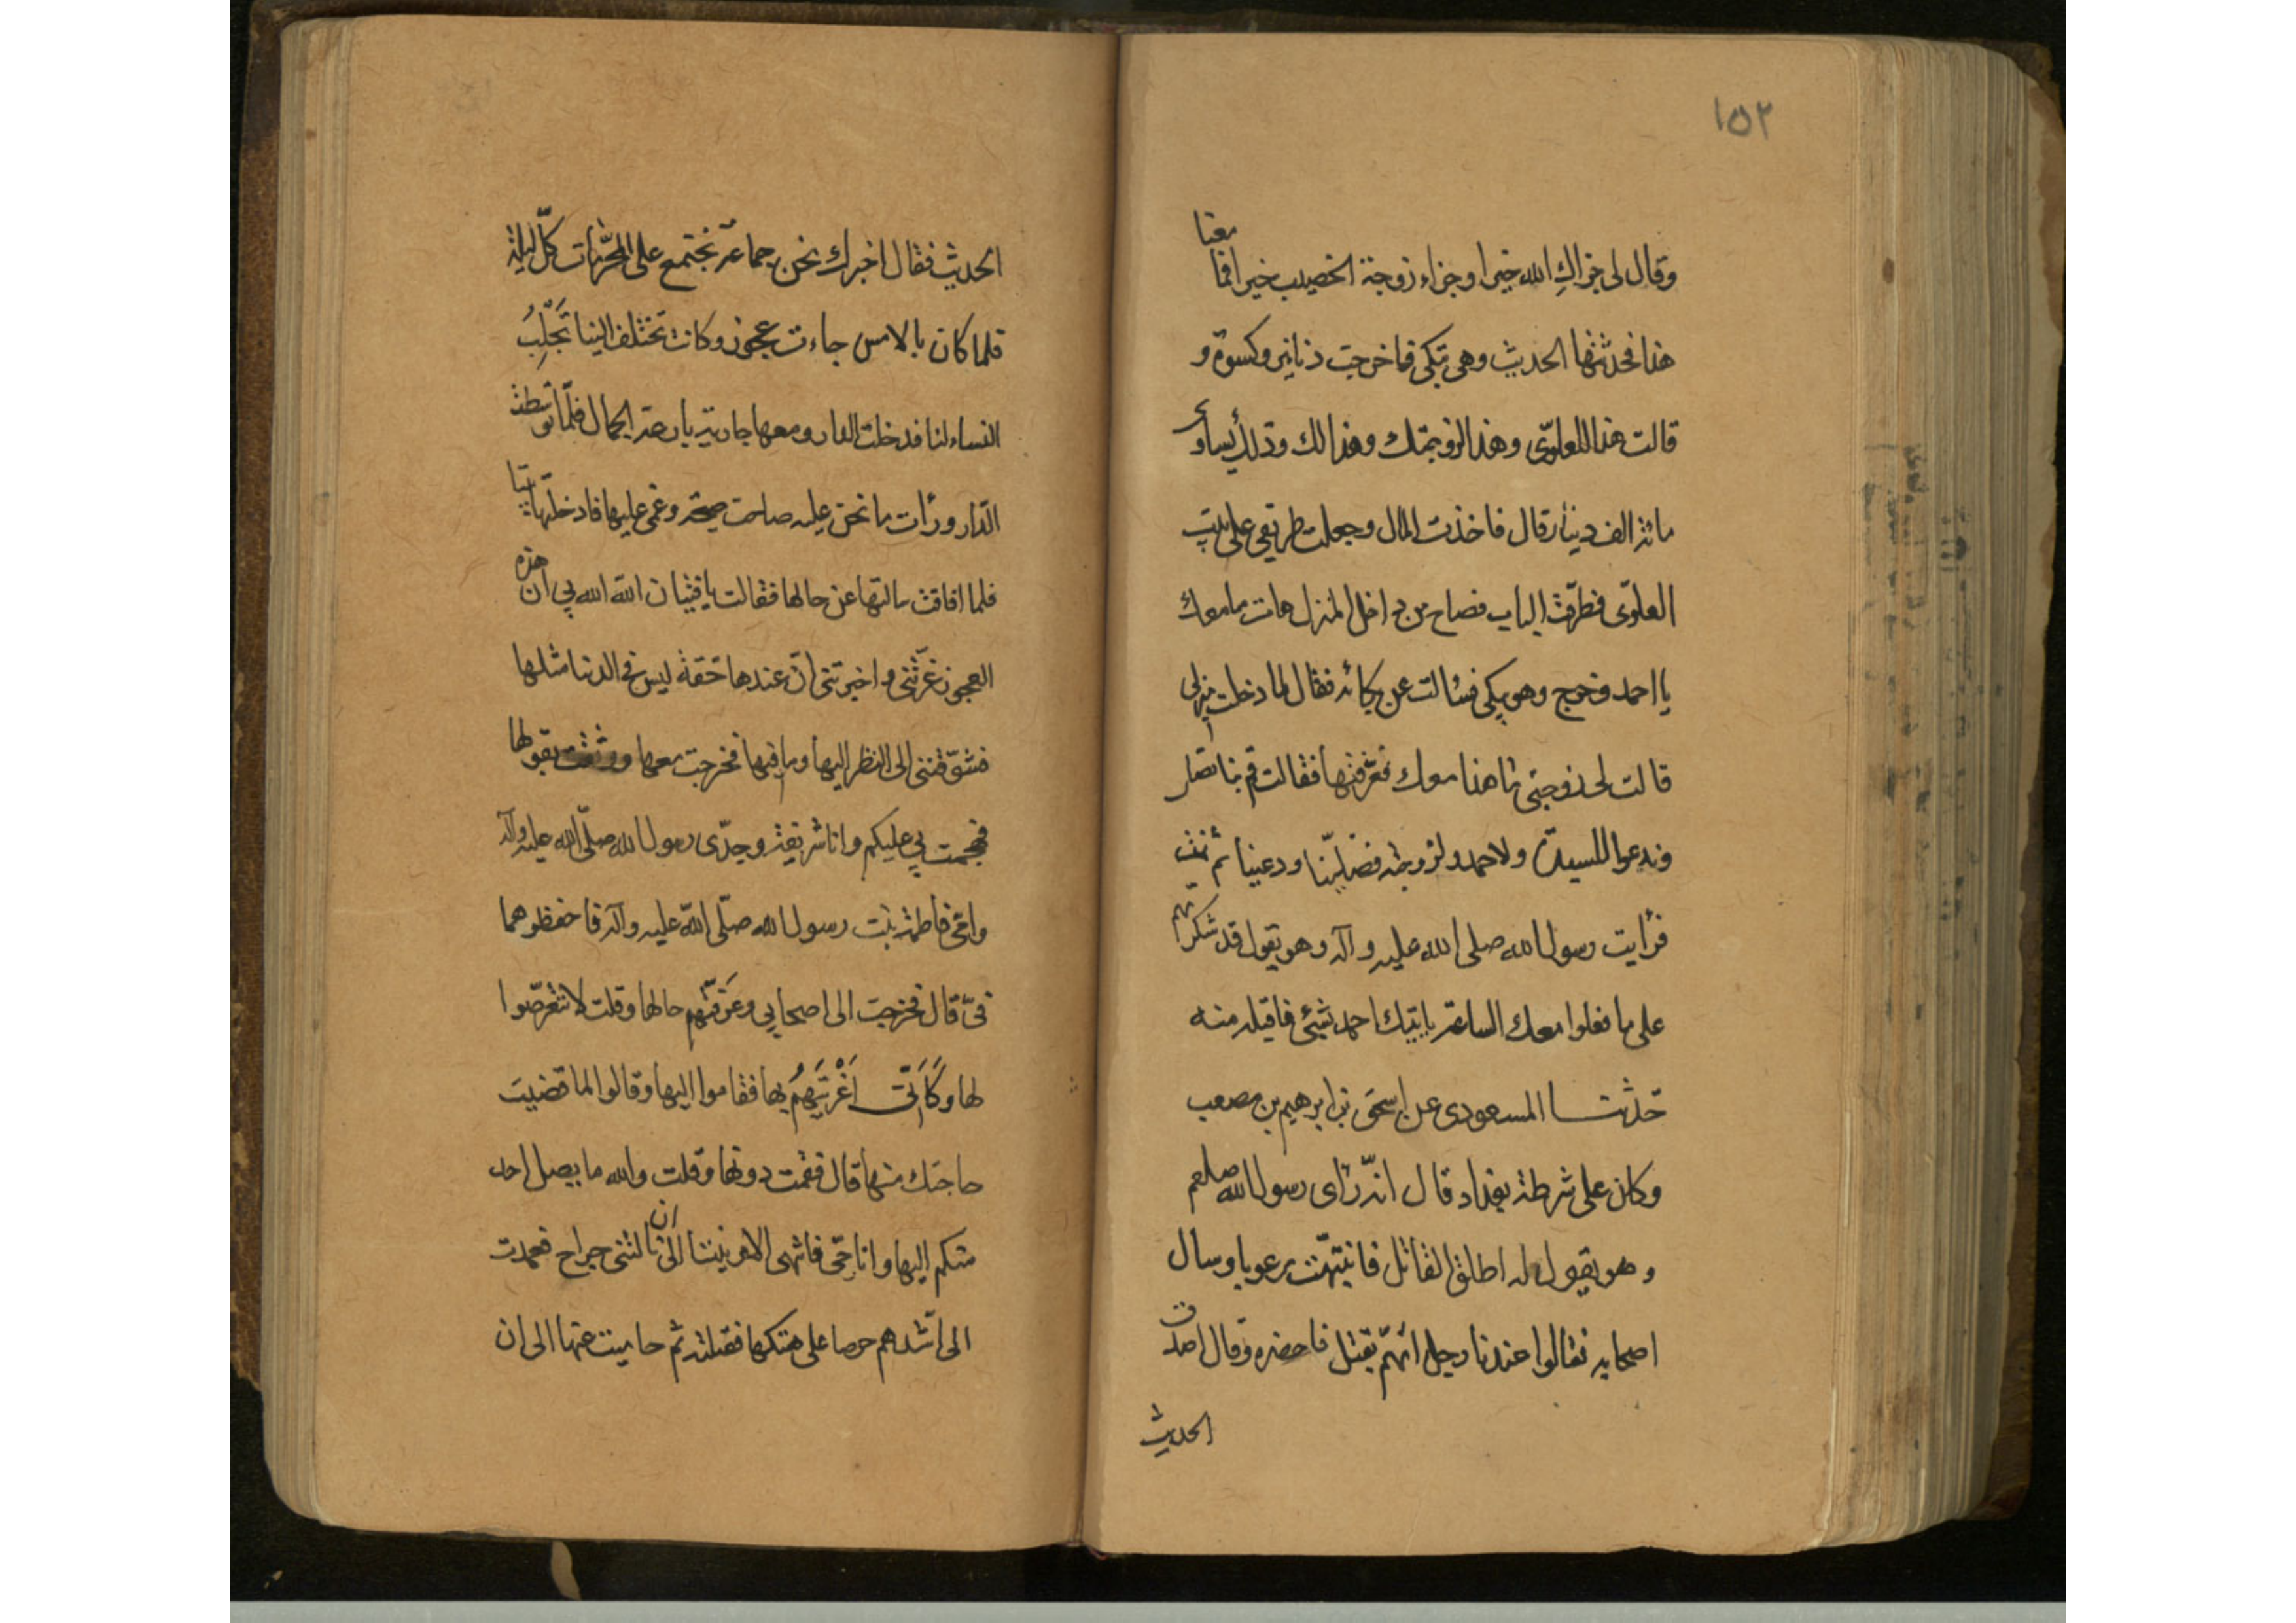 ١٥٢
وقال لى جزاك الله خيرا وجزاء زوجة الخصيب خيرا فما معنا
هذا فحدثتها الحديث وهى تبكى فاخرجت دنانير وكسوة و
قالت هذا للعلوّى وهذا لزوجتك وهذا لك وذلك يساوى
مائة الف دينار قال فاخذت المال وجعلت طريقى على بيت
العلوّى فطرقت الباب فصاح من داخل المنزل هات ما معك
يا احمد وخرج وهو يبكى فسالت عن بكائه فقال لما دخلت منزلى
قالت لى زوجتى ما هذا معك فعرّفتها فقالت قم بنا نصلى
وندعوا للسيدة ولاحمد ولزوجته فصلّينا ودعينا ثم نمت
فرأيت رسول الله صلى الله عليه وآله وهو يقول قد شكرتهم
على ما فعلوا معك الساعة ياتيك احمد بشيئ فاقبله منه
حدثنا المسعودى عن اسحق بن ابرهيم بن مصعب
وكان على شرطة بغداد قال انّه رأى رسول الله صلعم
وهو يقول له اطلق القاتل فانتبهت مرعوبا وسال
اصحابه فقالوا عندنا رجل اتهم بقتل فاحضره وقال اصدق
الحديث
الحديث فقال اخبرك نحن جماعة نجتمع على المحرّمات كلّ ليلة
فلما كان بالامس جاءت عجوز وكانت تختلف الينا تَجْلِبُ
النساء لنا فدخلت الدار ومعها جارية بارعة الجمال فلمّا توسّطت
الدّار ورأت ما نحن عليه صاحت صيحة وغمى عليها فادخلتها بيتا
فلما افاقت سالتها عن حالها فقالت يا فتيان الله الله بى ان هذه
العجوز غرّتنى واخبرتنى انّ عندها حقة ليس فى الدنيا مثلها
فشوّقتنى الى النظر اليها وما فيها فخرجت معها ووثقت بقولها
فهجمت بى عليكم وانا شريفة وجدّى رسول الله صلّى الله عليه وآله
وامّى فاطمة بنت رسول الله صلّى الله عليه وآله فاحفظوهما
فىّ قال فخرجت الى اصحابى وعَرّفتهم حالها وقلت لا تتعرّضوا
لها وكَاَنّى اَغْرَيْتَهُمْ بها فقاموا اليها وقالوا لما قضيت
حاجتك منها قال فقمت دونها وقلت والله ما يصل احد
منكم اليها وانا حىّ فانتهى الامر بيننا الى ان نالتنى جراح فعمدت
الى اشّدهم حرصا على هتكها فقتلته ثم حاميت عنها الى ان